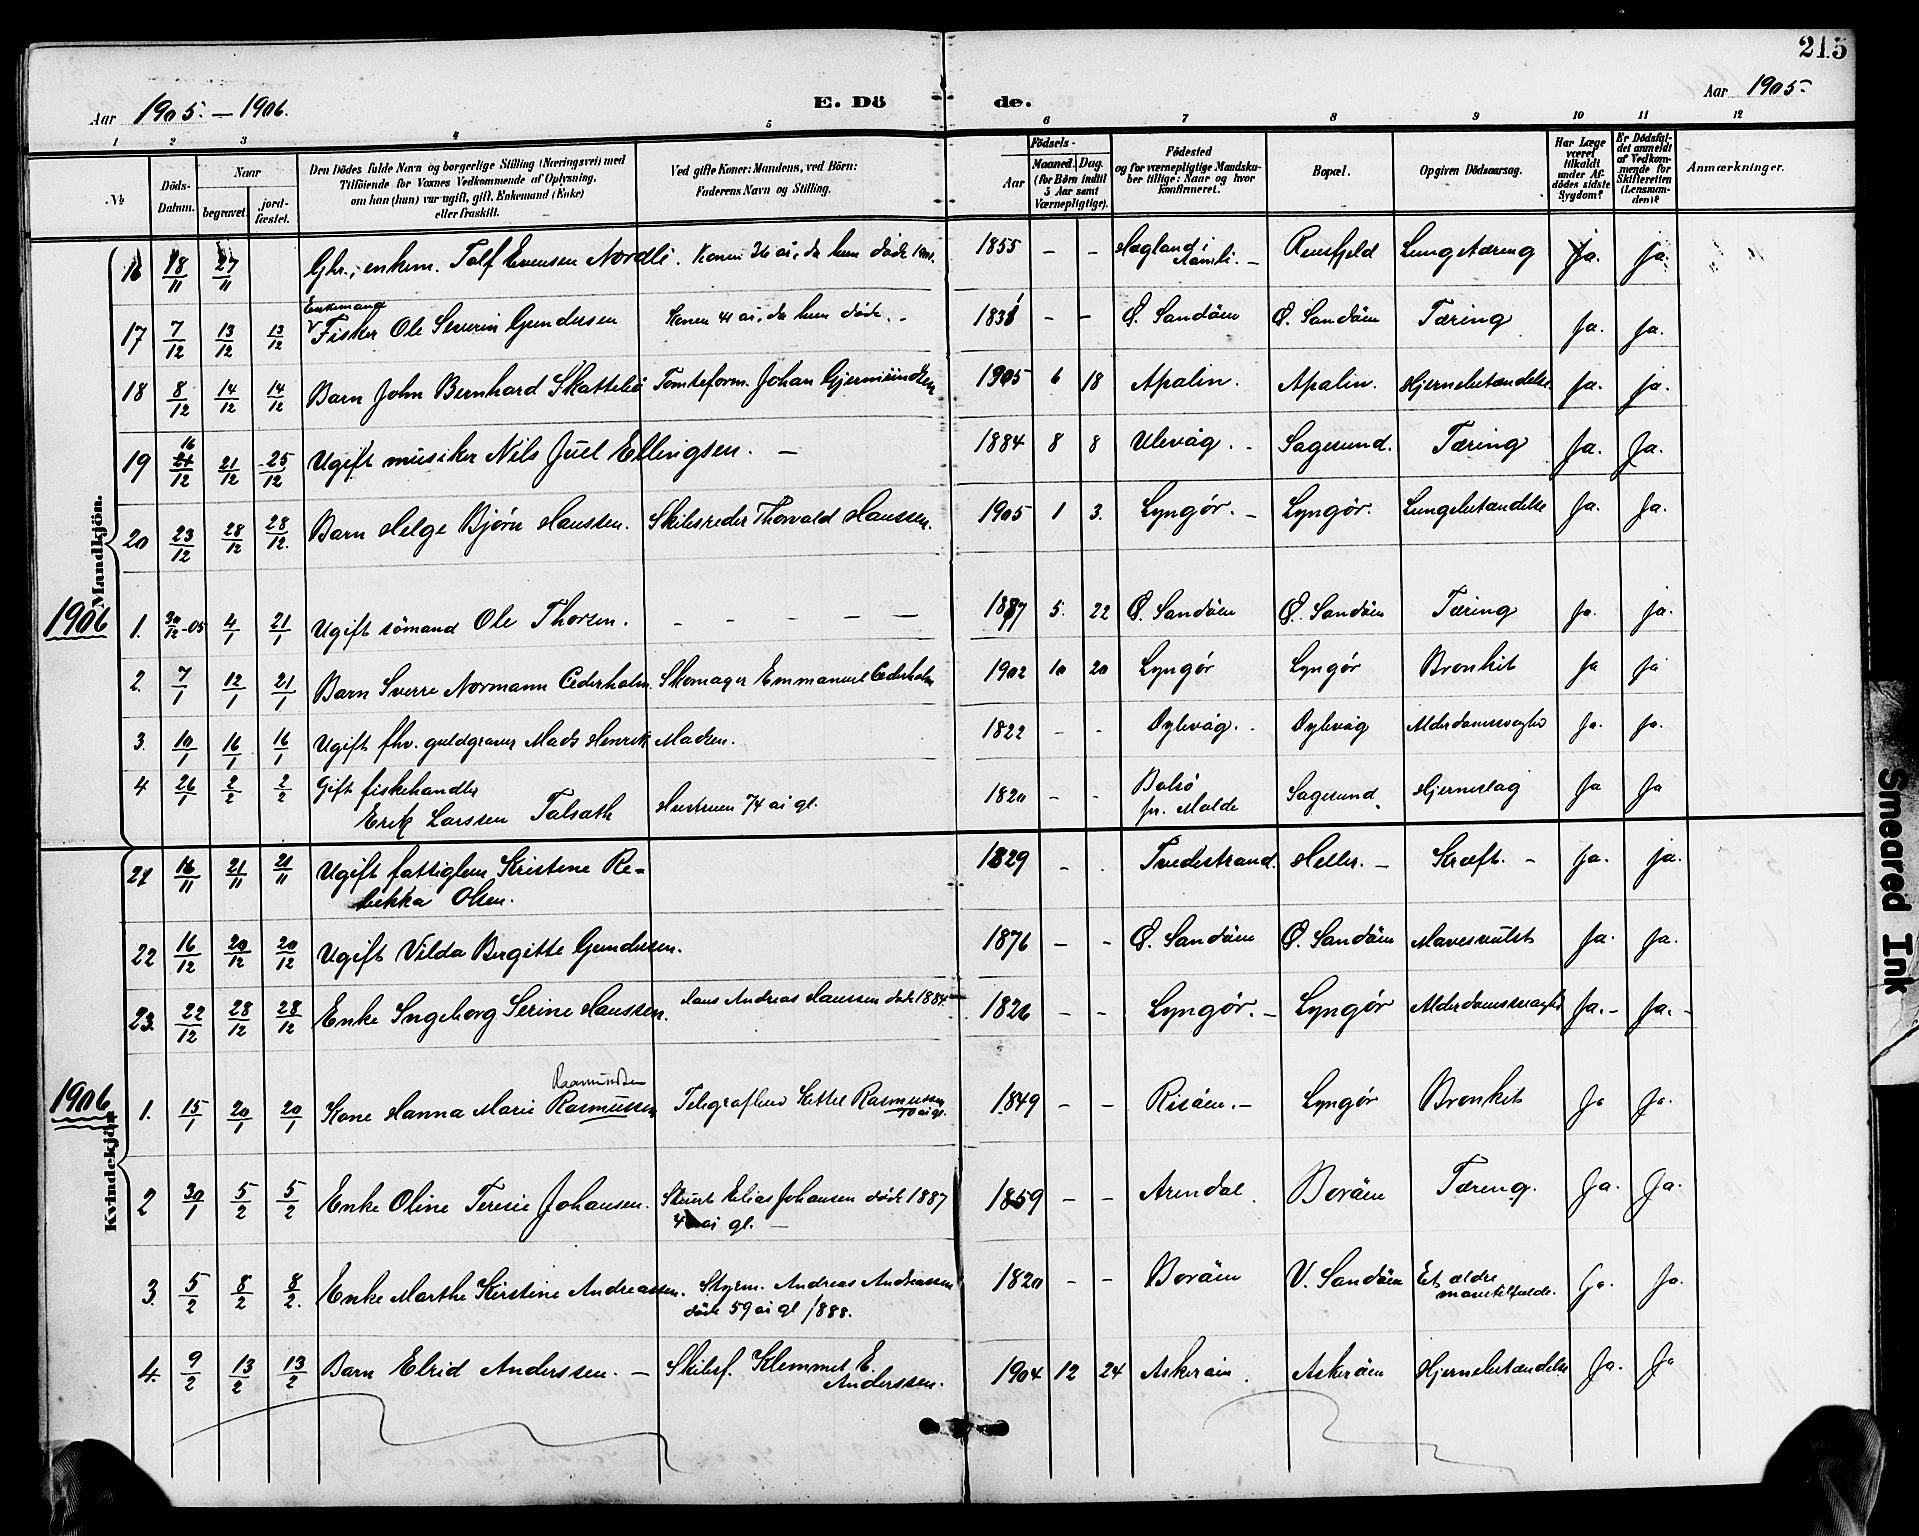 215
Aar 1905. - 1906.
E. Dö de.
Aar 1905.
1 2 3 4 5 6 7 8 9 10 11 12
№
Döds-Datum.
Naar
begravet.
jord-fæstet.
Den Dödes fulde Navn og borgerlige Stilling (Næringsvei) med
Tilföiende for Voxnes Vedkommende af Oplysning,
om han (hun) var ugift, gift, Enkemand (Enke)
eller fraskilt.
Ved gifte Koner: Mandens, ved Börn:
Faderens Navn og Stilling.
Födsels-
Aar
Maaned. Dag.
(for Börn indtil
5 Aar samt
Værnepligtige).
Födested
og for værnepligtige Mandska-
ber tillige: Naar og hvor
konfirmeret.
Bopæl.
Opgiven Dödsaarsag.
Har Læge
været
tilkaldt
under Af-
dödes sidste
Sygdom?
Er Dödsfal-
det anmeldt
af Vedkom-
mende for
Skifteretten
(Lensman-
den)?
Anmærkninger.
Mandkjön.
16 18/11 27/11 Gbr., enkem. Talf Evensen Nordli. Konen 36 år, da hun døde 1901. 1855 - - Hagland i Åmli. - Rensfjeld Lungetæring Ja. Ja.
Enkemand
17 7/12 13/12 13/12 Fisker Ole Severin Gundersen Konen 41 år, da hun døde. - 1831 - - Ø. Sandöen Ø. Sandöen Tæring Ja. Ja.
18 8/12 14/12 14/12 Barn John Bernhard Skattebö Tomteform. Johan Gjermundsen 1905 6 18 Apalen. Apalen. Hjernebetændelse Ja. Ja.
19 16/12 21/12 25/12 Ugift musiker Nils Juel Ellingsen. - 1884 8 8 Ulevåg. - Sagesund. Tæring Ja. Ja.
20 23/12 28/12 28/12. Barn Helge Bjørn Hanssen. Skibsreder Thorvald Hanssen. 1905 1 3. Lyngør. - Lyngør. Lungebetændelse Ja. Ja.
1906
1. 30/12-05 4/1 21/1 Ugift sömand Ole Thorsen. - - - - - 1887 5. 22 Ø. Sandöen Ø. Sandöen Tæring Ja. Ja.
2. 7/1 12/1 21/1 Barn Sverre Normann Cederholm. Skomager Emmanuel Cederholm 1902 10 20 Lyngør Lyngør Bronkit Ja Ja
3. 10/1 16/1 16/1 Ugift fhv. guldgraver Mads Henrik Madsen. 1822 - - Dybvåg. - Dybvåg Alderdomssvaghed Ja. Ja.
4 26/1 2/2 2/2 Gift fiskehandler
Erik Larssen Talsath Hustruen 74 år gl. 1820 - - Bolsö pr. Molde Sagesund. Hjerneslag Ja Ja
Kvindekjön
21 16/11 21/11 21/11 Ugift fattiglem Kristine Re-
bekka Olsen. 1829 - . Tvedestrand. Heller. - Kræft. - Ja. Ja.
22 16/12 20/12 20/12 Ugift Vilda Birgitte Gundersen. 1876 - - Ø. Sandöen Ø. Sandöen Mavesvulst Ja. Ja.
23. 22/12 28/12 28/12 Enke Ingeborg Serine Hanssen. Hans Andreas Hanssen døde 1884 1826 - - Lyngör. - Lyngör Alderdomssvaghed Ja. - Ja. -
1906
Rasmundsen
1. 15/1 20/1 20/1 Kone Hanna Marie Rasmussen Telegrafbud Kittel Rasmussen 70 år gl. 1849 - - Risöen. - Lyngör Bronkit Ja Ja.
2 30/1 5/2 5/2 Enke Oline Teresie Johansen. Skuest Elias Johansen döde 1887
år gl. - 1859 - - Arendal. Boröen Tæring. Ja. Ja.
3. 5/2 8/2 8/2. Enke Marthe Kirstine Andreassen. Styrm. Andreas Andreassen
döde 59 år gl 1888. 1820 - - Boröen V. Sandöen Et ældre mavetilfælde. Ja. Ja.
4. 9/2 13/2 13/2 Barn Elrid Anderssen. - Skibsf. Klemmet E.
Anderssen. 1904 12 24 Askeröen. Askeröen Hjernebetændelse Ja. Ja
Smeared Ink